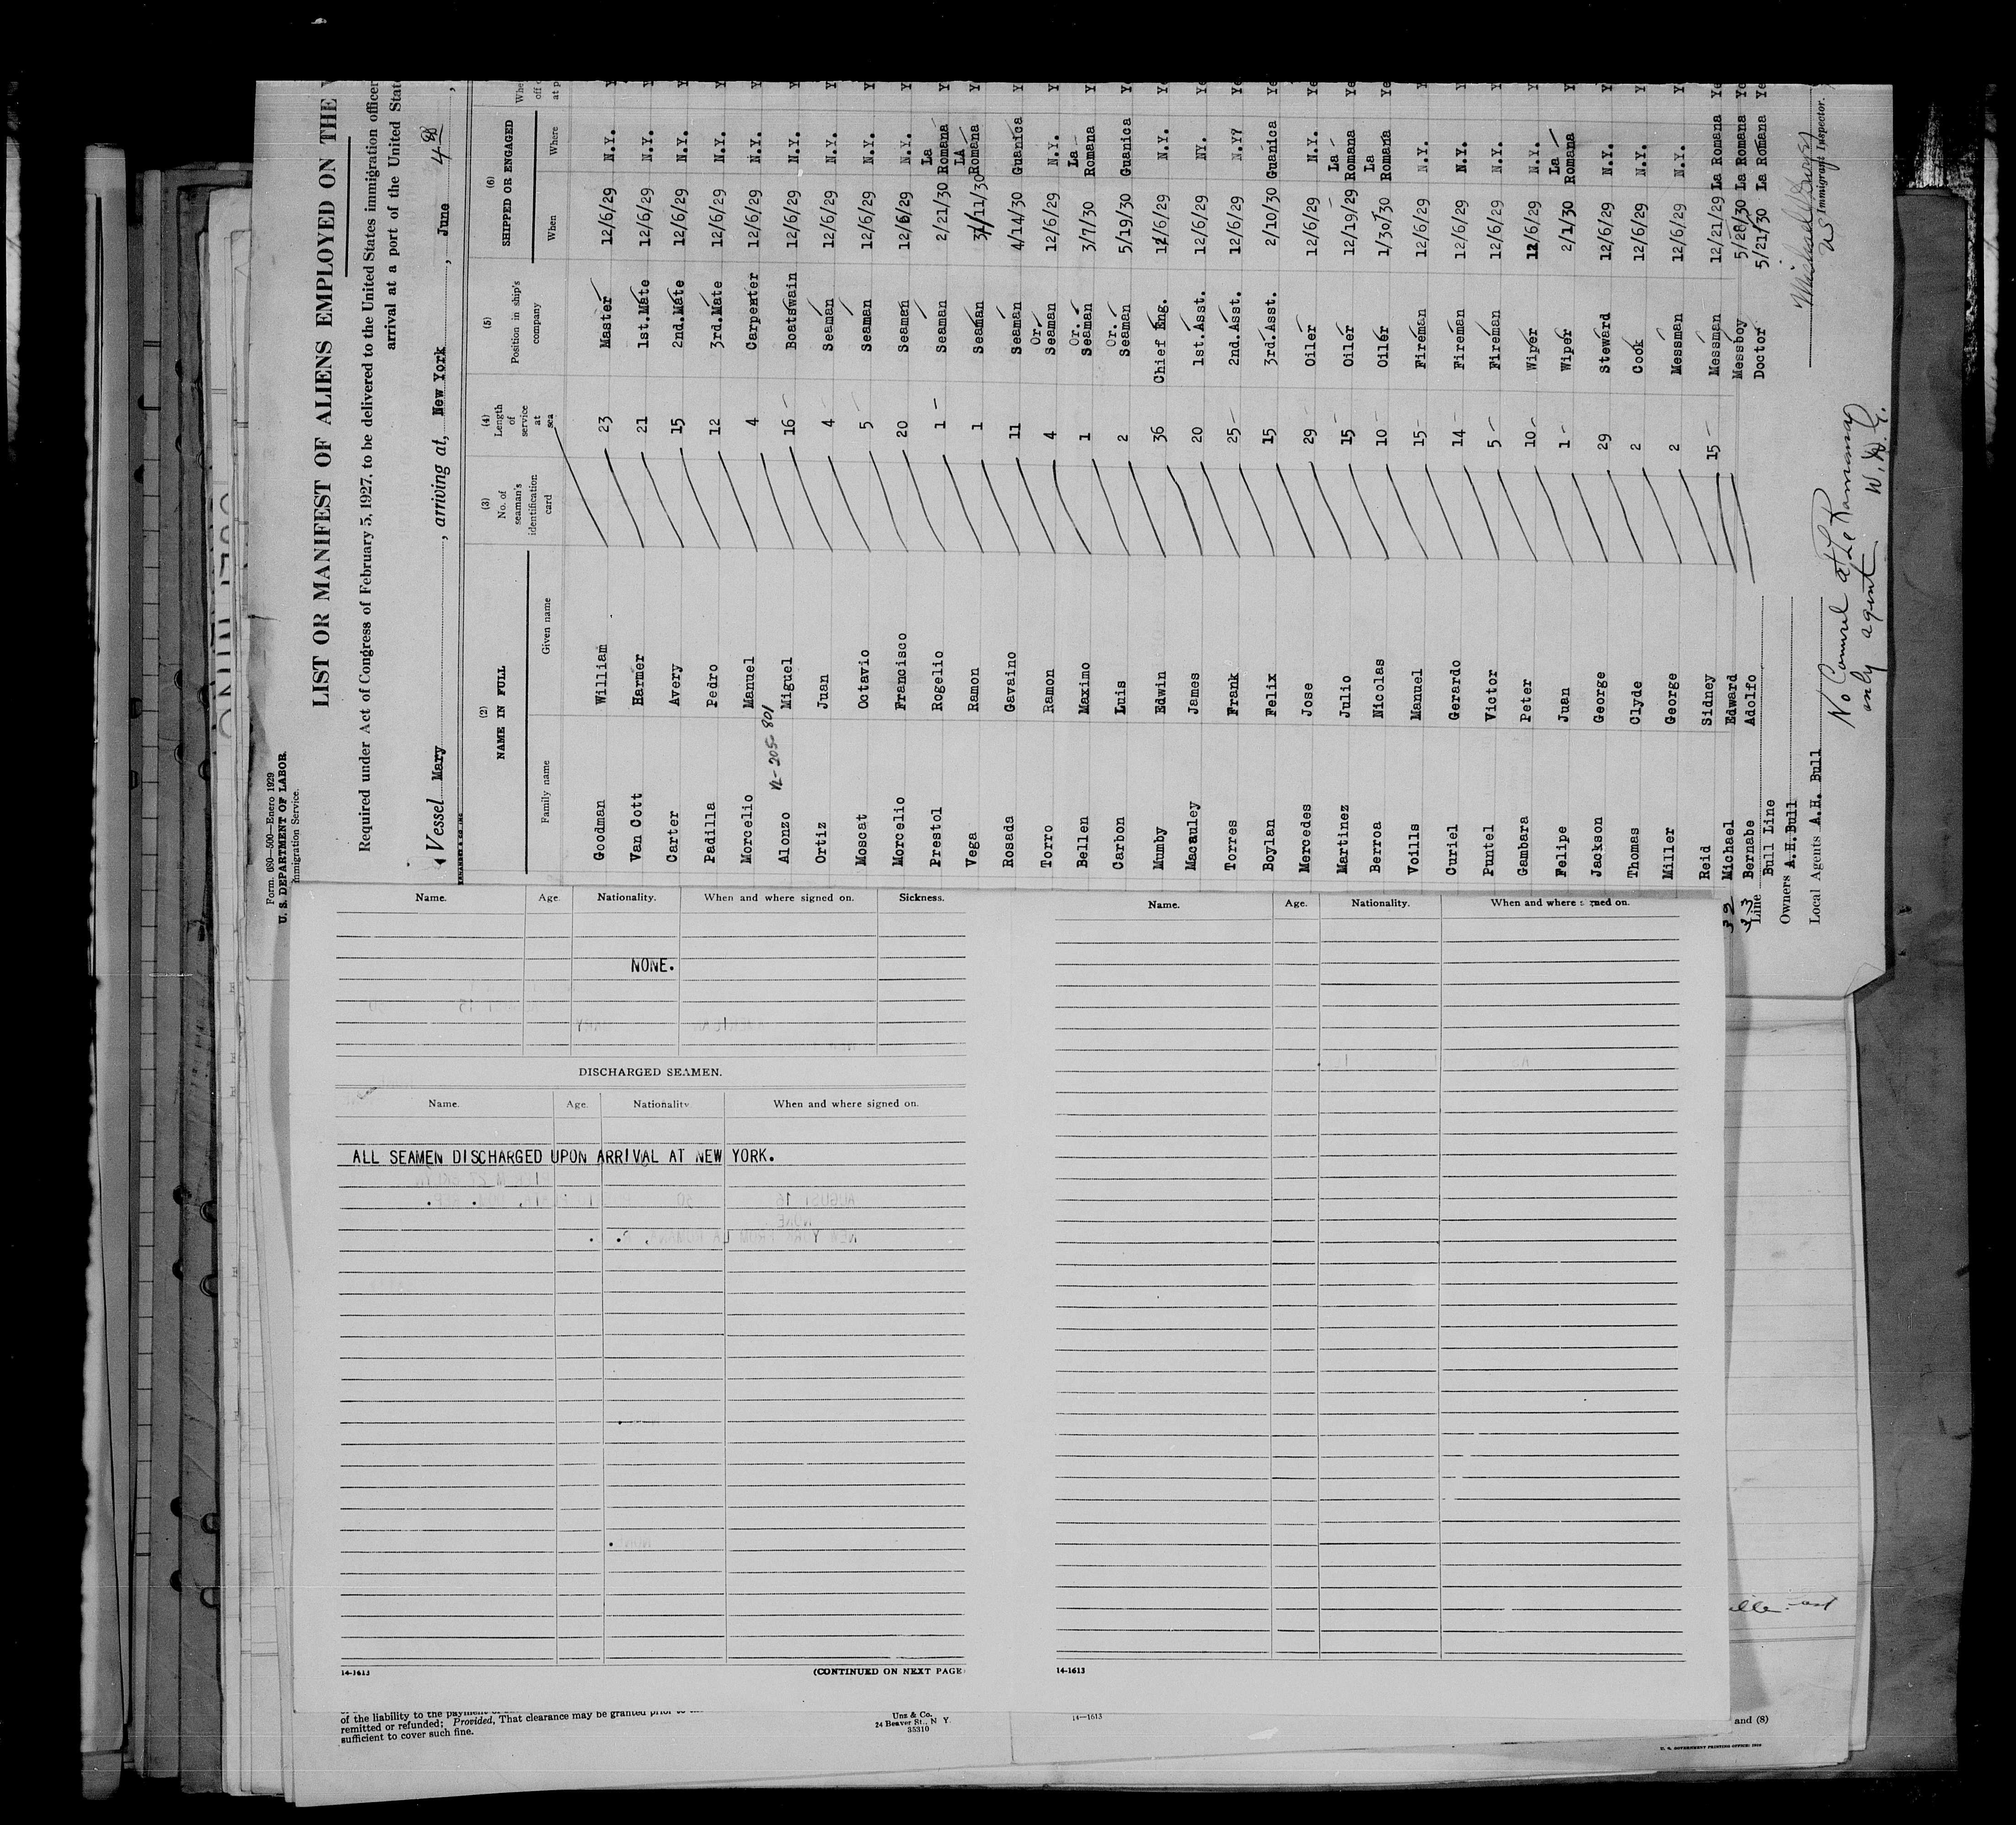 Form. 680—500—Enero 1929
U. S. DEPARTMENT OF LABOR
Immigration Service.
LIST OR MANIFEST OF ALIENS EMPLOYED ON THE
Required under Act of Congress of February 5, 1927, to be delivered to the United States immigration officer
arrival at a port of the United Stat
Vessel Mary, arriving at, New York, June 4
(2) NAME IN FULL (3) No. of seaman's identification card (4) Length of service at sea (5) Position in ship's company (6) SHIPPED OR ENGAGED
Family name Given name When Where
Goodman William 23 Master 12/6/29 N.Y. Y
Van Cott Harmer 21 1st.Mate 12/6/29 N.Y. Y
Carter Avery 15 2nd.Mate 12/6/29 N.Y. Y
Padilla Pedro 12 3rd.Mate 12/6/29 N.Y. Y
Morcelio Manuel 4 Carpenter 12/6/29 N.Y. Y
Alonzo Miguel 16 Boatswain 12/6/29 N.Y. Y
Ortiz Juan 4 Seaman 12/6/29 N.Y. Y
Moscat Octavio 5 Seaman 12/6/29 N.Y. Y
Morcelio Francisco 20 Seaman 12/6/29 N.Y. Y
Prestol Rogelio 1 Seaman 2/21/30 La Romana Ye
Vega Ramon 1 Seaman 3/11/30 LA Romana Ye
Rosada Gavaino 11 Seaman 4/14/30 Guanica Y
Torro Ramon 4 Or. Seaman 12/6/29 N.Y. Y
Bellen Maximo 1 Or. Seaman 3/7/30 La Romana Y
Carbon Luis 2 Or. Seaman 5/19/30 Guanica Y
Mumby Edwin 36 Chief Eng. 12/6/29 N.Y. Ye
Macauley James 20 1st.Asst. 12/6/29 NY. Y
Torres Frank 25 2nd.Asst. 12/6/29 N.YY Ye
Boylan Felix 15 3rd.Asst. 2/10/30 Guanica Ye
Mercedes Jose 29 Oiler 12/6/29 N.Y. Ye
Martinez Julio 15 Oiler 12/19/29 La Romana Ye
Berroa Nicolas 10 Oiler 1/30/30 La Romana Ye
Voills Manuel 15 Fireman 12/6/29 N.Y. Y
Curiel Gerardo 14 Fireman 12/6/29 N.Y. Y
Puntel Victor 5 Fireman 12/6/29 N.Y. Y
Gambara Peter 10 Wiper 12/6/29 N.Y. Y
Felipe Juan 1 Wiper 2/1/30 La Romana Y
Jackson George 29 Steward 12/6/29 N.Y. Y
Thomas Clyde 2 Cook 12/6/29 N.Y. Y
Miller George 2 Messman 12/6/29 N.Y. Y
Reid Sidney 15 Messman 12/21/29 La Romana Ye
32 Michael Edward Messboy 5/28/30 La Romana Ye
33 Bernabe Adolfo Doctor 5/21/30 La Romana Ye
Line Bull Line
Owners A.H.Bull
Local Agents A.H. Bull
Immigrant Inspector.
only agent W.
Name. Age. Nationality. When and where signed on. Sickness.
NONE.
DISCHARGED SEAMEN.
Name. Age. Nationality. When and where signed on.
ALL SEAMEN DISCHARGED UPON ARRIVAL AT NEW YORK.
14-1613 (CONTINUED ON NEXT PAGE)
Name. Age. Nationality. When and where signed on.
14-1613
remitted or refunded; Provided, That clearance may be granted prior to
sufficient to cover such fine.
Unz & Co.
24 Beaver St., N Y
35310
14—1613
and (8)